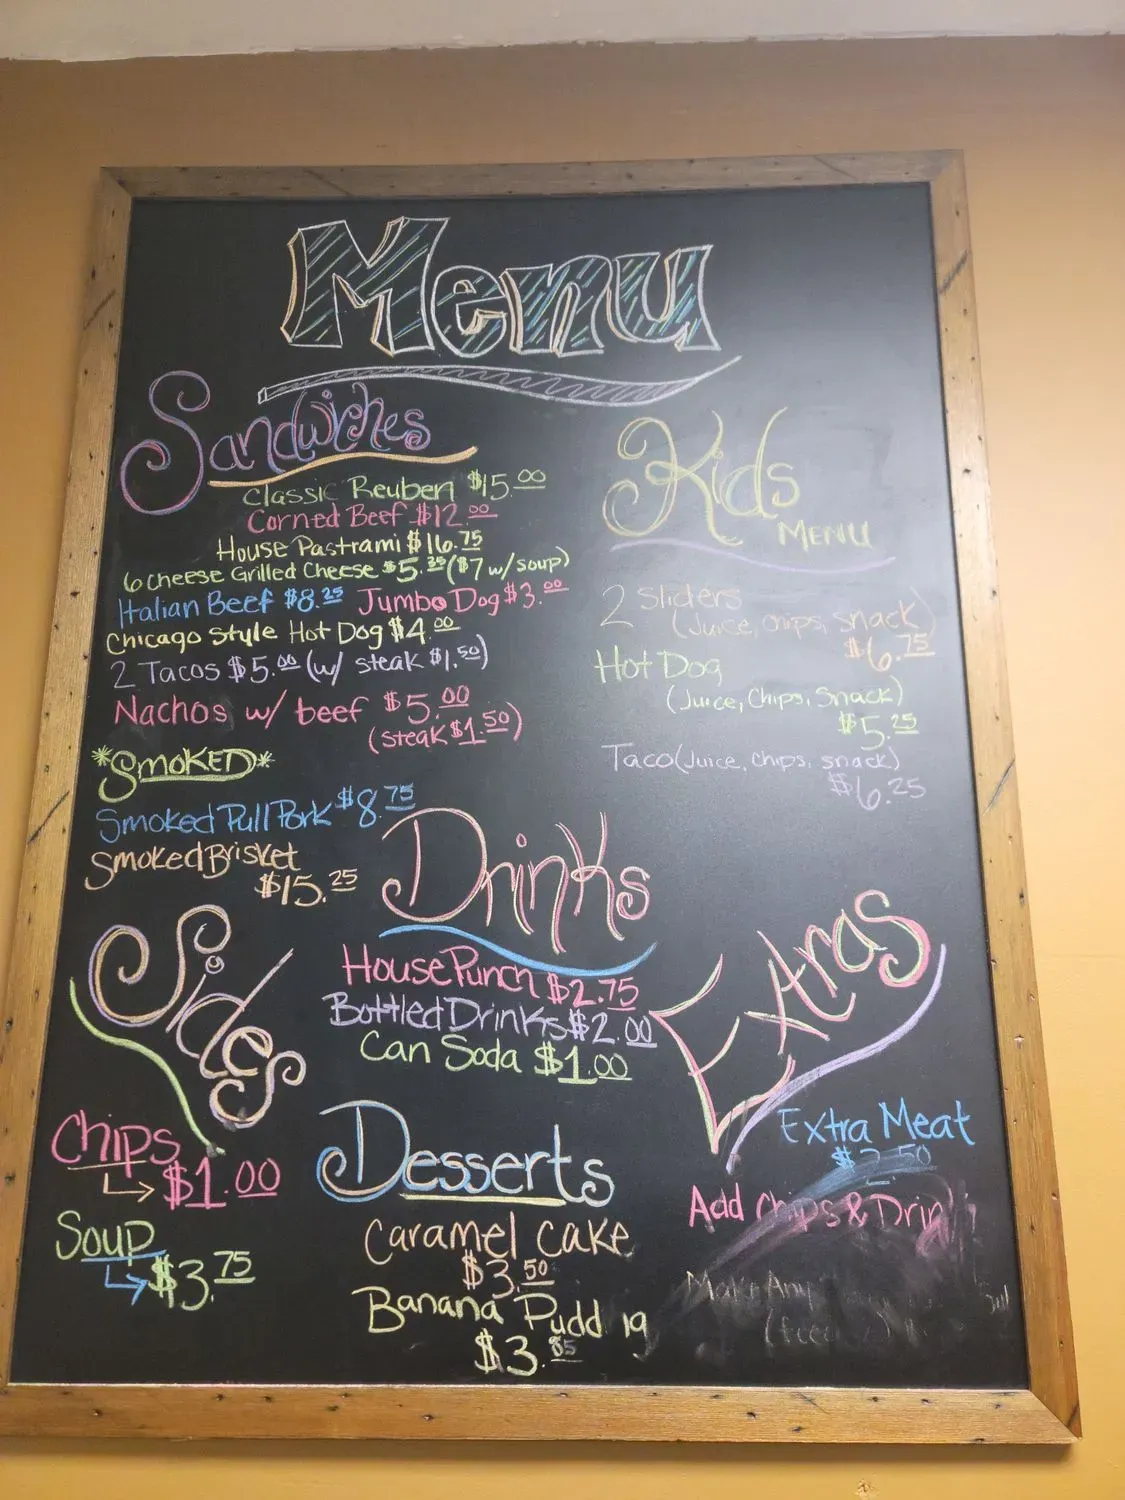 Menu
Sandwiches
Classic Reuben $15.00
Corned Beef $12.00
House Pastrami $16.75
6 cheese Grilled Cheese $5.25 ($7 w/ soup)
Italian Beef $8.25 Jumbo Dog $3.00
Chicago Style Hot Dog $4.00
2 Tacos $5.00 (w/ steak $1.50)
Nachos w/ beef $5.00
(steak $1.50)
*SMOKED*
Smoked Pull Pork $8.75
Smoked Brisket
$15.25
Kids
MENU
2 Sliders
(Juice, chips, snack)
$6.75
Hot Dog
(Juice, Chips, Snack)
$5.25
Taco (Juice, chips, snack)
$6.25
Drinks
House Punch $2.75
Bottled Drinks $2.00
Can Soda $1.00
Sides
Chips
$1.00
Soup
$3.75
Desserts
Caramel Cake
$3.50
Banana Pudd ig
$3.85
Extras
Extra Meat
$2.50
Add Chips & Drink
Make Any